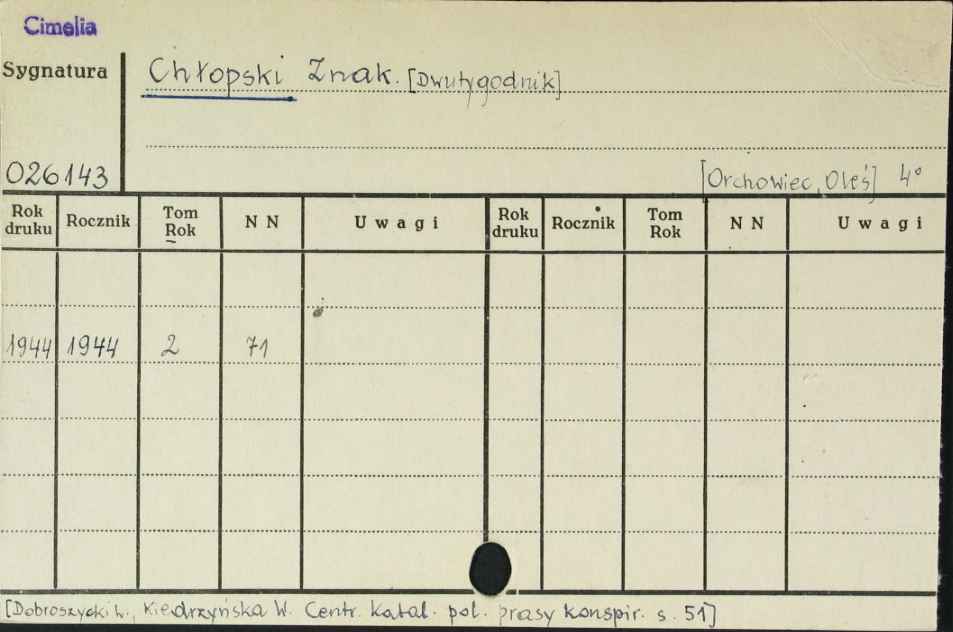 Cimelia
Sygnatura
Chłopski Znak. [Dwutygodnik]
026143
[Orchowiec, Oleś] 4°
Rok druku Rocznik Tom Rok N N Uwagi Rok druku Rocznik Tom Rok N N Uwagi
1944 1944 2 71
[Dobroszycki L., Kiedrzyńska W. Centr. katal. pol. prasy konspir. s. 51]